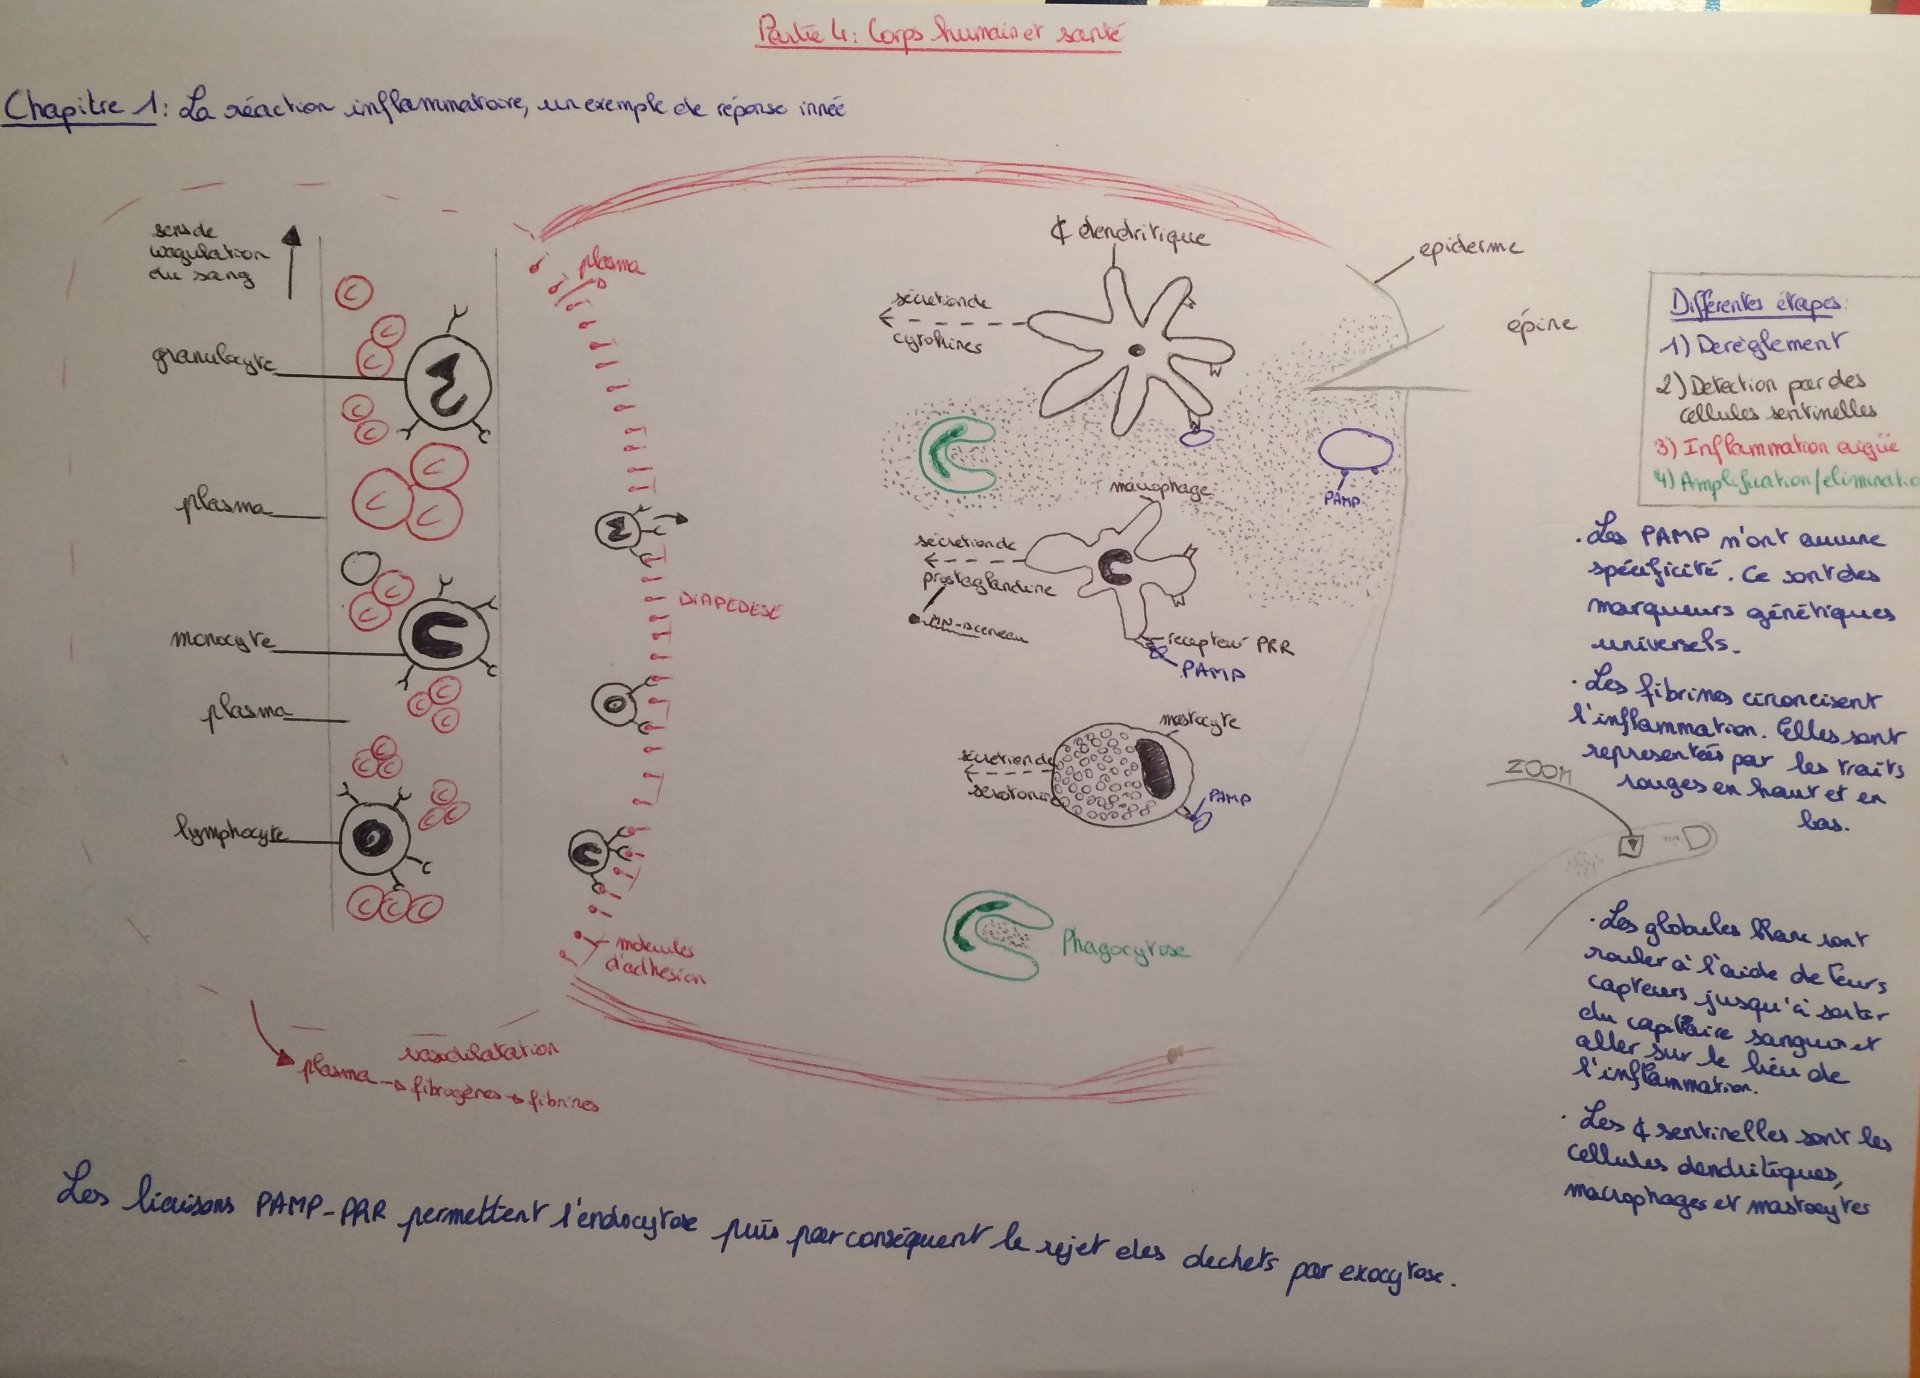 Partie 4: Corps humain et santé
Chapitre 1: La réaction inflammatoire, un exemple de réponse innée
sens de
coagulation
du sang
granulocyte
plasma
monocyte
plasma
lymphocyte
plasma
DIAPEDESE
molécules
d'adhésion
vasodilatation
plasma → fibrogènes → fibrines
¢ dendritique
sécrétion de
cytokines
macrophage
sécrétion de
prostaglandine
recepteur PRR
PAMP
mastocyte
sécrétion de
serotonine
PAMP
Phagocytose
epiderme
épine
PAMP
Différentes étapes:
1) Deréglement
2) Détection par des
cellules sentinelles
3) Inflammation aigüe
4) Amplification/eliminatio
. Les PAMP n'ont aucune
spécificité. Ce sont des
marqueurs génétiques
universels.
. Les fibrines circoncisent
l'inflammation. Elles sont
representées par les traits
rouges en haut et en
bas.
ZOOM
. Les globules blanc sont
rouler à l'aide de leurs
capteurs jusqu'à sortir
du capillaire sanguin et
aller sur le lieu de
l'inflammation.
. Les ¢ sentinelles sont les
cellules dendritiques,
macrophages et mastocytes
Les liaisons PAMP-PRR permettent l'endocytose puis par conséquent le rejet des dechets par exocytose.